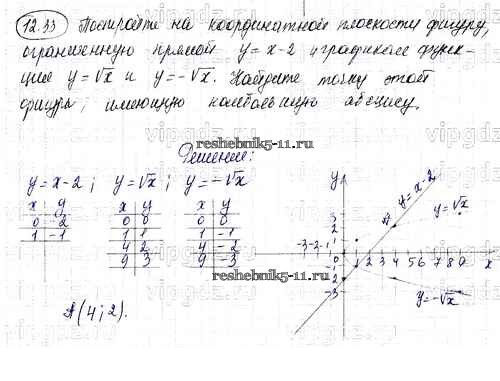 12.33 Постройте на координатной плоскости фигуру,
ограниченную прямой y = x-2 и графиками функ-
ций y=√x и y=-√x. Найдите точку этой
фигуры, имеющую наибольшую абсциссу.
reshebnik5-11.ru
Решение:
y = x-2; y=√x; y=-√x
x y x y x y
0 -2 0 0 0 0
1 -1 1 1 1 -1
4 2 4 -2
9 3 9 -3
reshebnik5-11.ru
A(4;2).
y
y=x-2
y=√x
3
2
1
-3 -2 -1 0 1 2 3 4 5 6 7 8 9 x
-1
-2
-3
y=-√x
vipgdz.ru